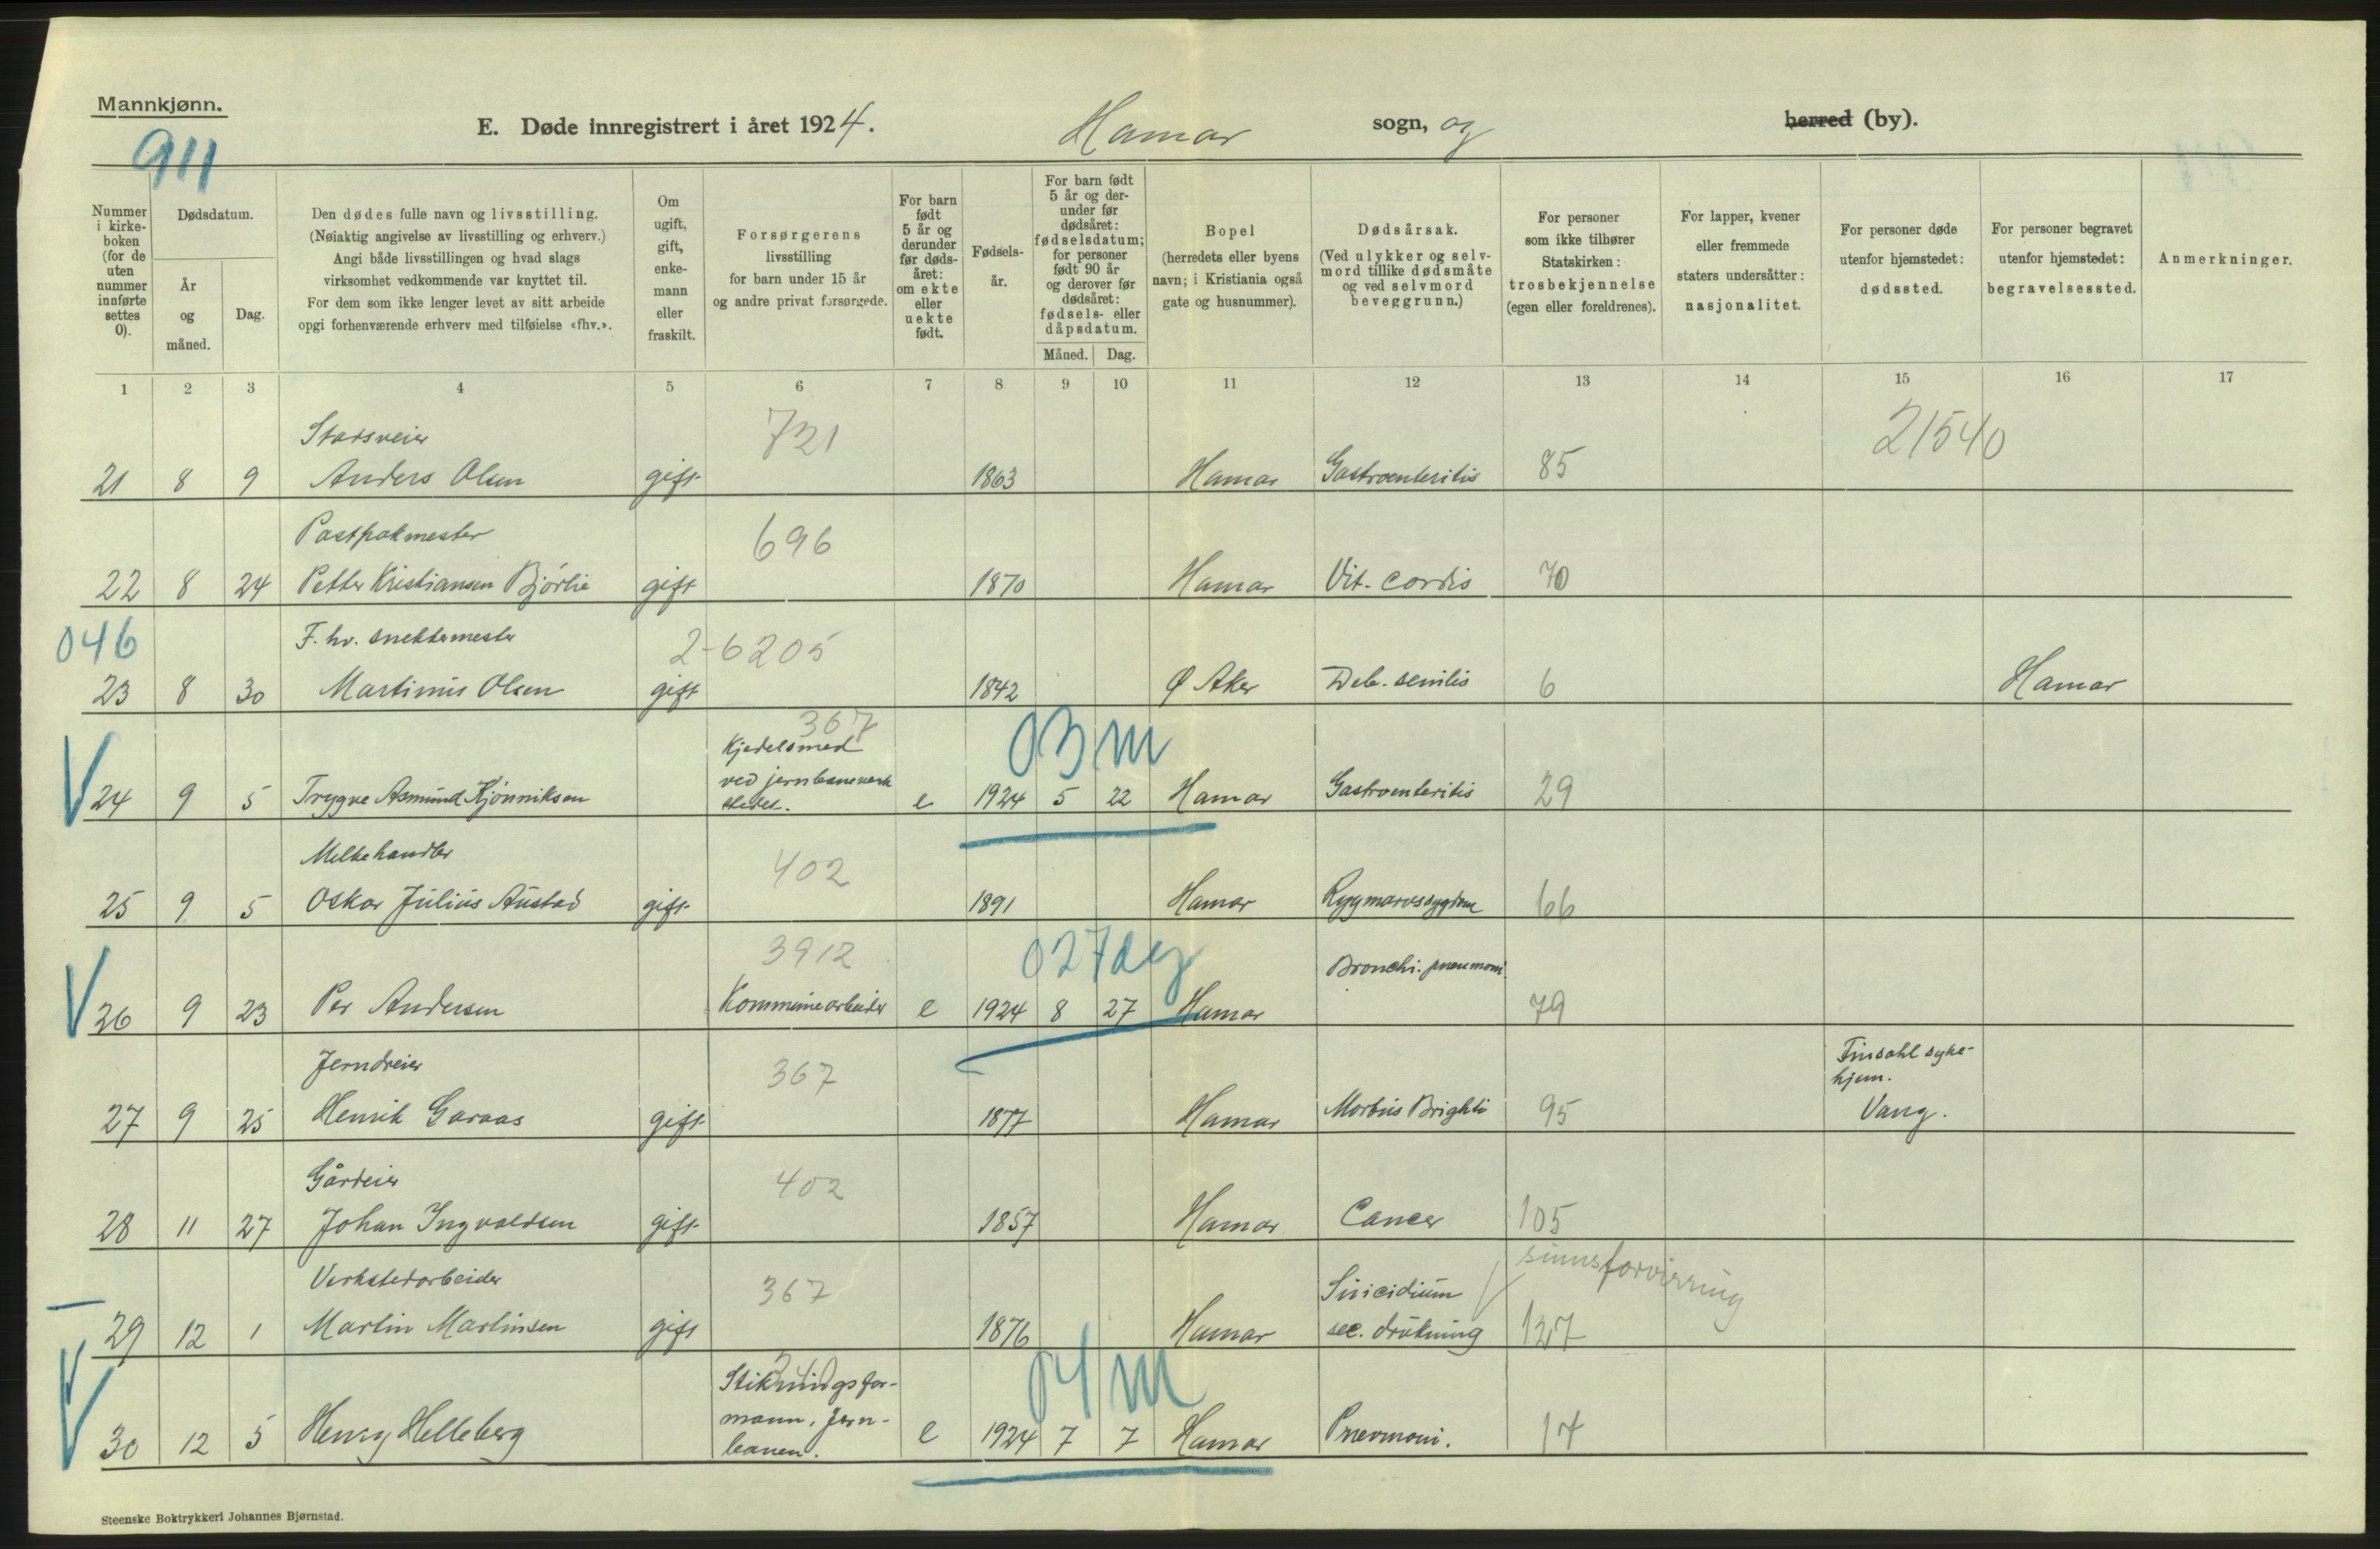 Mannkjønn.
911
E. Døde innregistrert i året 1924. Hamar sogn, og herred (by).
Nummer i kirkeboken (for de uten nummer innførte settes 0).
Dødsdatum.
År og måned.
Dag.
Den dødes fulle navn og livsstilling.
(Nøiaktig angivelse av livsstilling og erhverv.)
Angi både livsstillingen og hvad slags
virksomhet vedkommende var knyttet til.
For dem som ikke lenger levet av sitt arbeide
opgi forhenværende erhverv med tilføielse «fhv.».
Om ugift, gift, enkemann eller fraskilt.
Forsørgerens
livsstilling
for barn under 15 år
og andre privat forsørgede.
For barn født 5 år og derunder før dødsåret: om ekte eller uekte født.
Fødselsår.
For barn født 5 år og derunder før dødsåret: fødselsdatum; for personer født 90 år og derover før dødsåret: fødsels- eller dåpsdatum.
Måned. Dag.
Bopel
(herredets eller byens
navn; i Kristiania også
gate og husnummer).
Dødsårsak.
(Ved ulykker og selvmord tillike dødsmåte og ved selvmord beveggrunn.)
For personer
som ikke tilhører
Statskirken:
trosbekjennelse
(egen eller foreldrenes).
For lapper, kvener
eller fremmede
staters undersåtter:
nasjonalitet.
For personer døde
utenfor hjemstedet:
dødssted.
For personer begravet
utenfor hjemstedet:
begravelsessted.
Anmerkninger.
1 2 3 4 5 6 7 8 9 10 11 12 13 14 15 16 17
Stadsveier 721 21540
21 8 9 Anders Olsen gift 1863 Hamar Gastroenteritis 85
Postpakmester 696
22 8 24 Petter Kristiansen Bjørlie gift 1870 Hamar Vit. cordis 70
046 F. hv. snekkermester 2-6205
23 8 30 Martinus Olsen gift 1842 Ø Aker Deb. senilis 6 Hamar
367
Kjedelsmed 03m
ved jernbaneverk
24 9 5 Trygve Asmund Kjønniksen stedet. e 1924 5 22 Hamar Gastroenteritis 29
Melkehandler 402
25 9 5 Oskar Julius Austad gift 1891 Hamar Rygmarvssygdom 66
3912 027dg Bronchi. pneumoni
26 9 23 Per Andersen Kommunearbeider e 1924 8 27 Hamar 79
Jerndreier 367 Finsahl sykehjem.
27 9 25 Henrik Garaas gift 1877 Hamar Morbus Brighti 95 Vang.
Gårdeier 402
28 11 27 Johan Ingvaldsen gift 1857 Hamar Cancer 105
Verkstedarbeider 367 Suicidium sinnsforvirring
29 12 1 Martin Martinsen gift 1876 Hamar sec. drukning 127
Stikningsfor- 04m
mann, Jern-
30 12 5 Henry Helleberg banen. e 1924 7 7 Hamar Pnevmoni. 17
Steenske Boktrykkeri Johannes Bjørnstad.